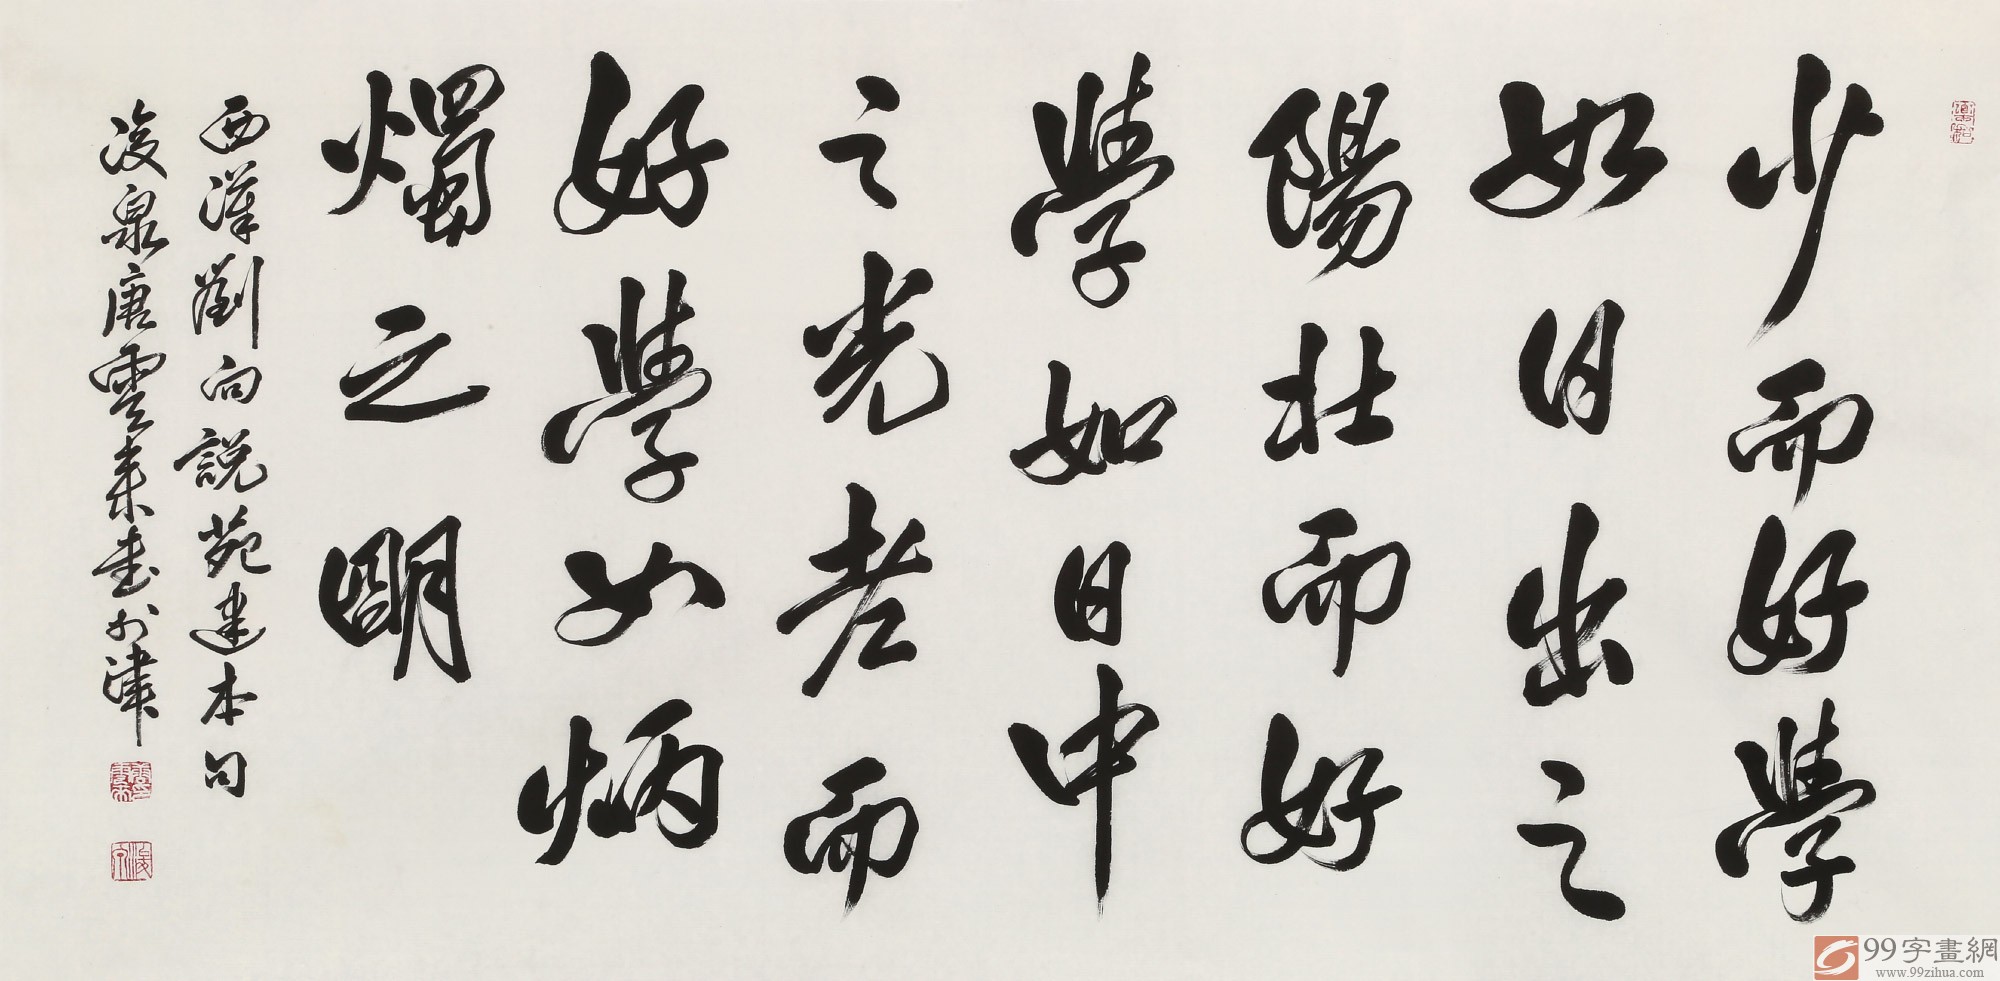 少而好學
如日出之
陽壯而好
學如日中
之光老而
好學如炳
燭之明
西漢劉向說苑建本句
浚泉唐雲來書於津
99字畫網
www.99zihua.com